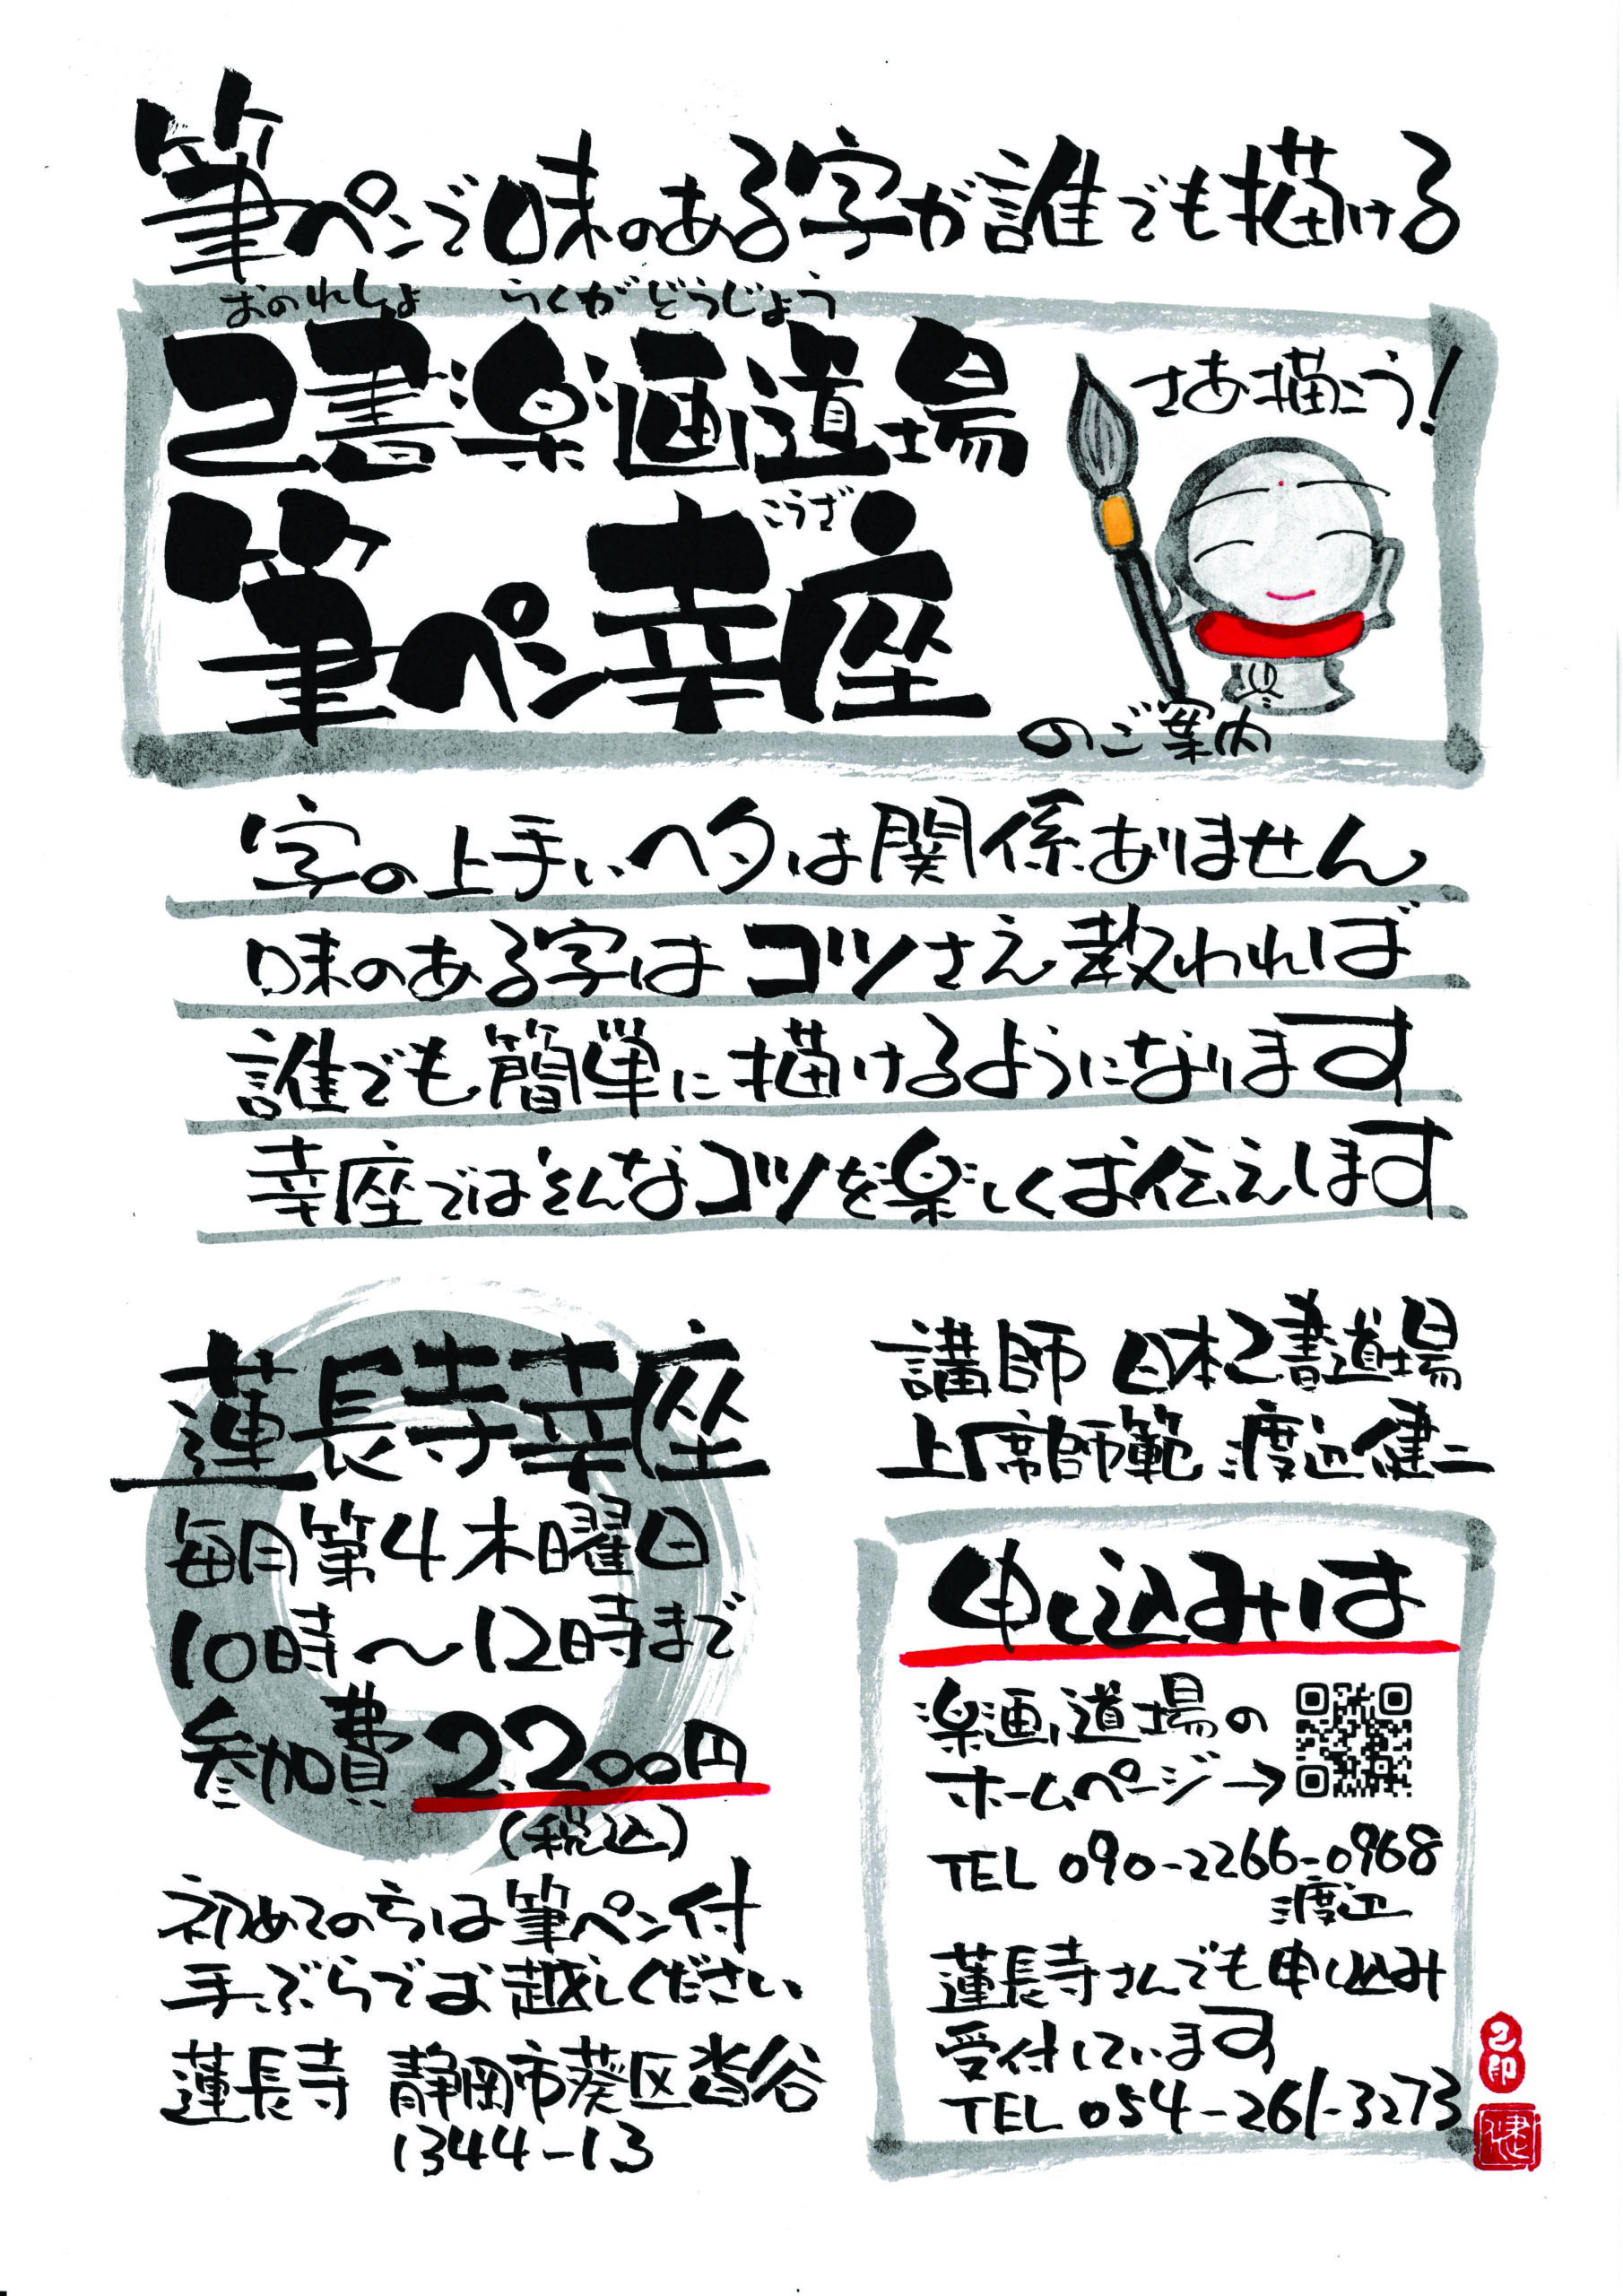 筆ペンで味のある字が誰でも描ける
おのれしょ らくがどうじょう
己書楽画道場
さあ描こう!
こうざ
筆ペン幸座
のご案内
字の上手いヘタは関係ありません
味のある字はコツさえ教われば
誰でも簡単に描けるようになります
幸座ではそんなコツを楽しくお伝えします
蓮長寺幸座
毎月第4木曜日
10時〜12時まで
参加費 2,200円
(税込)
初めての方は筆ペン付
手ぶらでお越しください
蓮長寺 静岡市葵区沓谷
1344-13
講師 日本己書道場
上席師範 渡辺健二
申し込みは
楽画道場の
ホームページ→
TEL 090-2266-0968
渡辺
蓮長寺さんでも申し込み
受付しています
TEL 054-261-3273
己印
健